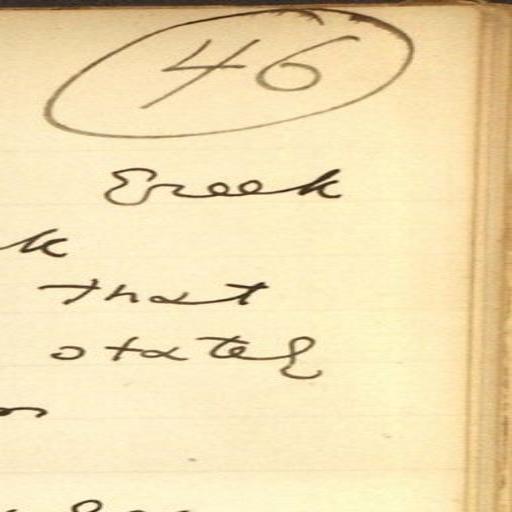 46
Creek
k
that
states